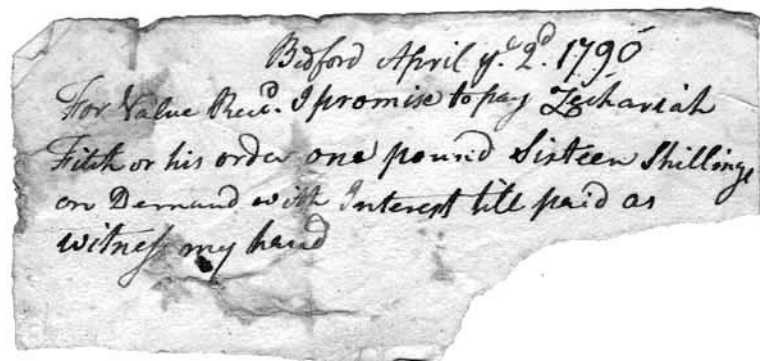 Bedford April yᵉ 2ᵈ. 1790
For Value Recᵈ. I promise to pay Zechariah
Fitch or his order one pound Sixteen Shillings
on Demand with Interest till paid as
witness my hand